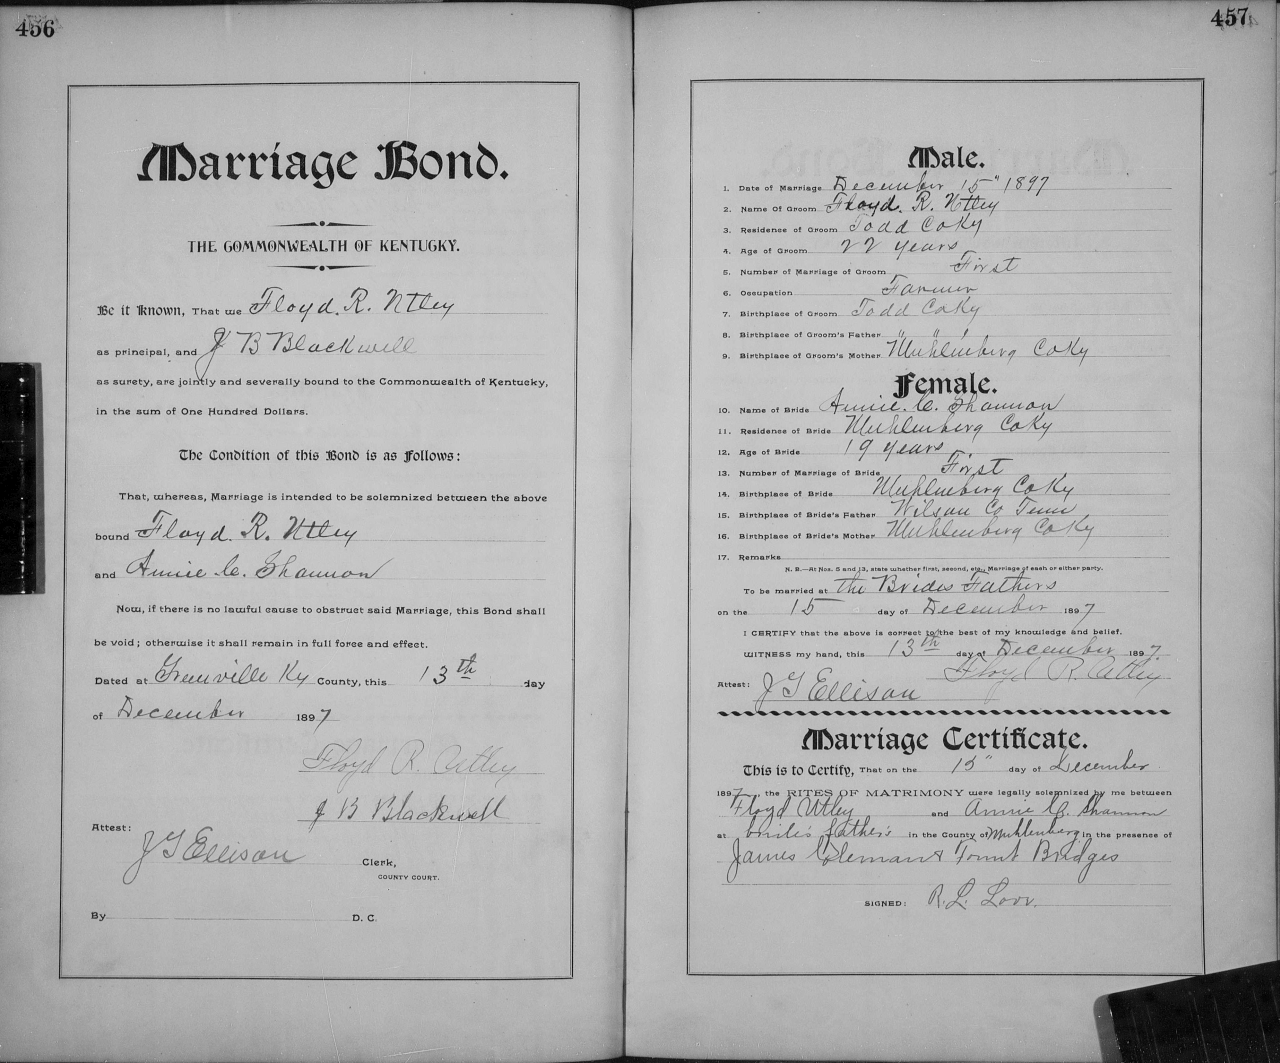 456
Marriage Bond.
THE COMMONWEALTH OF KENTUCKY.
Be it Known, That we Floyd. R. Utley
as principal, and J B Blackwell
as surety, are jointly and severally bound to the Commonwealth of Kentucky,
in the sum of One Hundred Dollars.
The Condition of this Bond is as Follows:
That, whereas, Marriage is intended to be solemnized between the above
bound Floyd. R. Utley
and Annie C. Shannon
Now, if there is no lawful cause to obstruct said Marriage, this Bond shall
be void; otherwise it shall remain in full force and effect.
Dated at Greenville Ky County, this 13th day
of December 1897
Floyd R. Utley
J B Blackwell
Attest:
J G Ellison Clerk,
COUNTY COURT.
By D. C.
457
Male.
1. Date of Marriage December 15" 1897
2. Name Of Groom Floyd. R. Utley
3. Residence of Groom Todd Co Ky
4. Age of Groom 22 years
5. Number of Marriage of Groom First
6. Occupation Farmer
7. Birthplace of Groom Todd Co Ky
8. Birthplace of Groom's Father " " "
9. Birthplace of Groom's Mother Muhlenberg Co Ky
Female.
10. Name of Bride Annie. C. Shannon
11. Residence of Bride Muhlenberg Co Ky
12. Age of Bride 19 years
13. Number of Marriage of Bride First
14. Birthplace of Bride Muhlenberg Co Ky
15. Birthplace of Bride's Father Wilson Co Tenn
16. Birthplace of Bride's Mother Muhlenberg Co Ky
17. Remarks
N. B.—At Nos. 5 and 13, state whether first, second, etc., Marriage of each or either party.
To be married at the Brides Fathers
on the 15 day of December 1897
I CERTIFY that the above is correct to the best of my knowledge and belief.
WITNESS my hand, this 13th day of December 1897
Floyd R. Utley
Attest: J G Ellison
Marriage Certificate.
This is to Certify, That on the 15" day of December
1897, the RITES OF MATRIMONY were legally solemnized by me between
Floyd Utley and Annie C. Shannon
at bride's father's in the County of Muhlenberg in the presence of
James Coleman & Bridges
SIGNED: R. L.